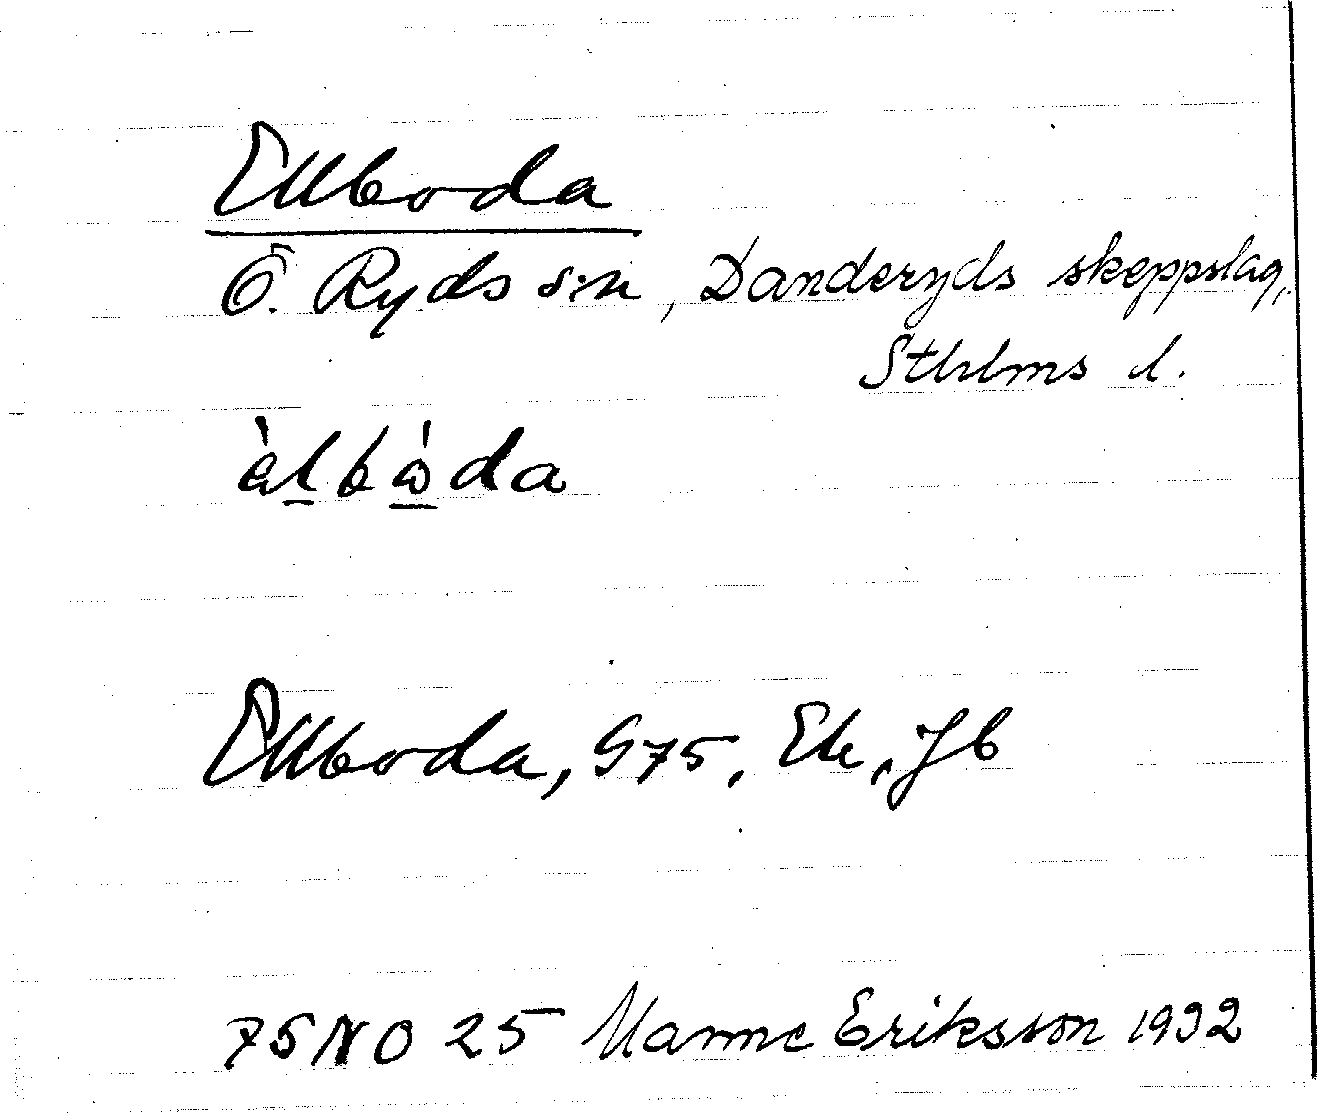 Ellboda
Ö. Ryds s:n, Danderyds skeppslag,
Sthlms l.
àlbòda
Ellboda, G75, Ek, Jb
75 NO 25 Manne Eriksson 1932